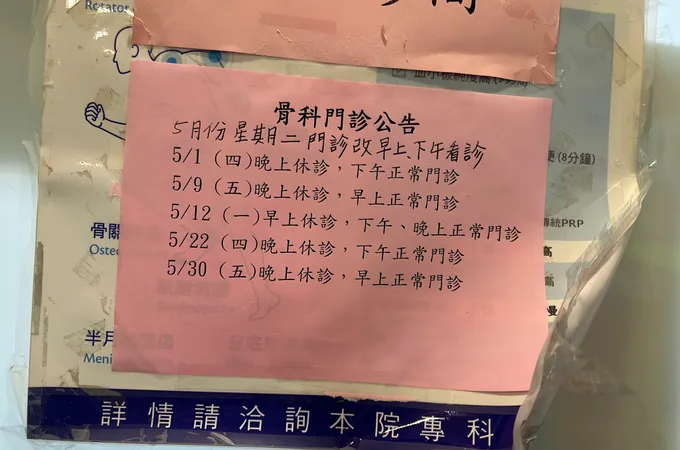 Rotator
骨科門診公告
5月份星期二門診改早上下午看診
5/1 (四)晚上休診，下午正常門診
5/9 (五)晚上休診，早上正常門診
5/12 (一)早上休診，下午、晚上正常門診
5/22 (四)晚上休診，下午正常門診
5/30 (五)晚上休診，早上正常門診
更(8分鐘)
傳統PRP
骨關
Osteo
高
高
慢
半月
Meni
詳情請洽詢本院專科